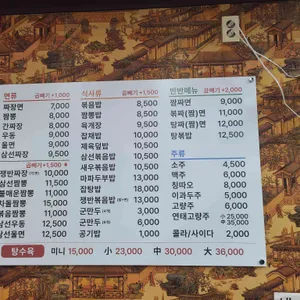 면류 곱빼기 +1,000
짜장면 7,000
짬뽕 8,000
간짜장 8,000
우동 9,000
울면 9,000
삼선짜장 9,500
곱빼기 +1,500
쟁반짜장 10,000
삼선짬뽕 11,500
불매운짬뽕 11,000
차돌짬뽕 11,500
볶음짬뽕 11,000
삼선우동 12,500
삼선울면 12,500
식사류 곱빼기 +1,500
볶음밥 8,500
짬뽕밥 8,500
육개장 9,500
잡채밥 10,500
제육덮밥 10,500
삼선볶음밥 10,500
새우볶음밥 10,500
마파두부밥 13,500
잡탕밥 18,000
쟁반볶음밥 13,500
군만두 3,000
군만두 6,000
공기밥 1,000
반반메뉴 곱빼기 +2,000
짬짜면 9,000
볶짜(짬)면 11,000
탕짜(짬)면 12,000
탕볶밥 12,500
주류
소주 4,500
맥주 6,000
칭따오 8,000
이과두주 5,000
고량주 6,000
연태고량주 小 25,000
中 35,000
콜라/사이다 2,000
탕수육 미니 15,000 小 23,000 中 30,000 大 36,000